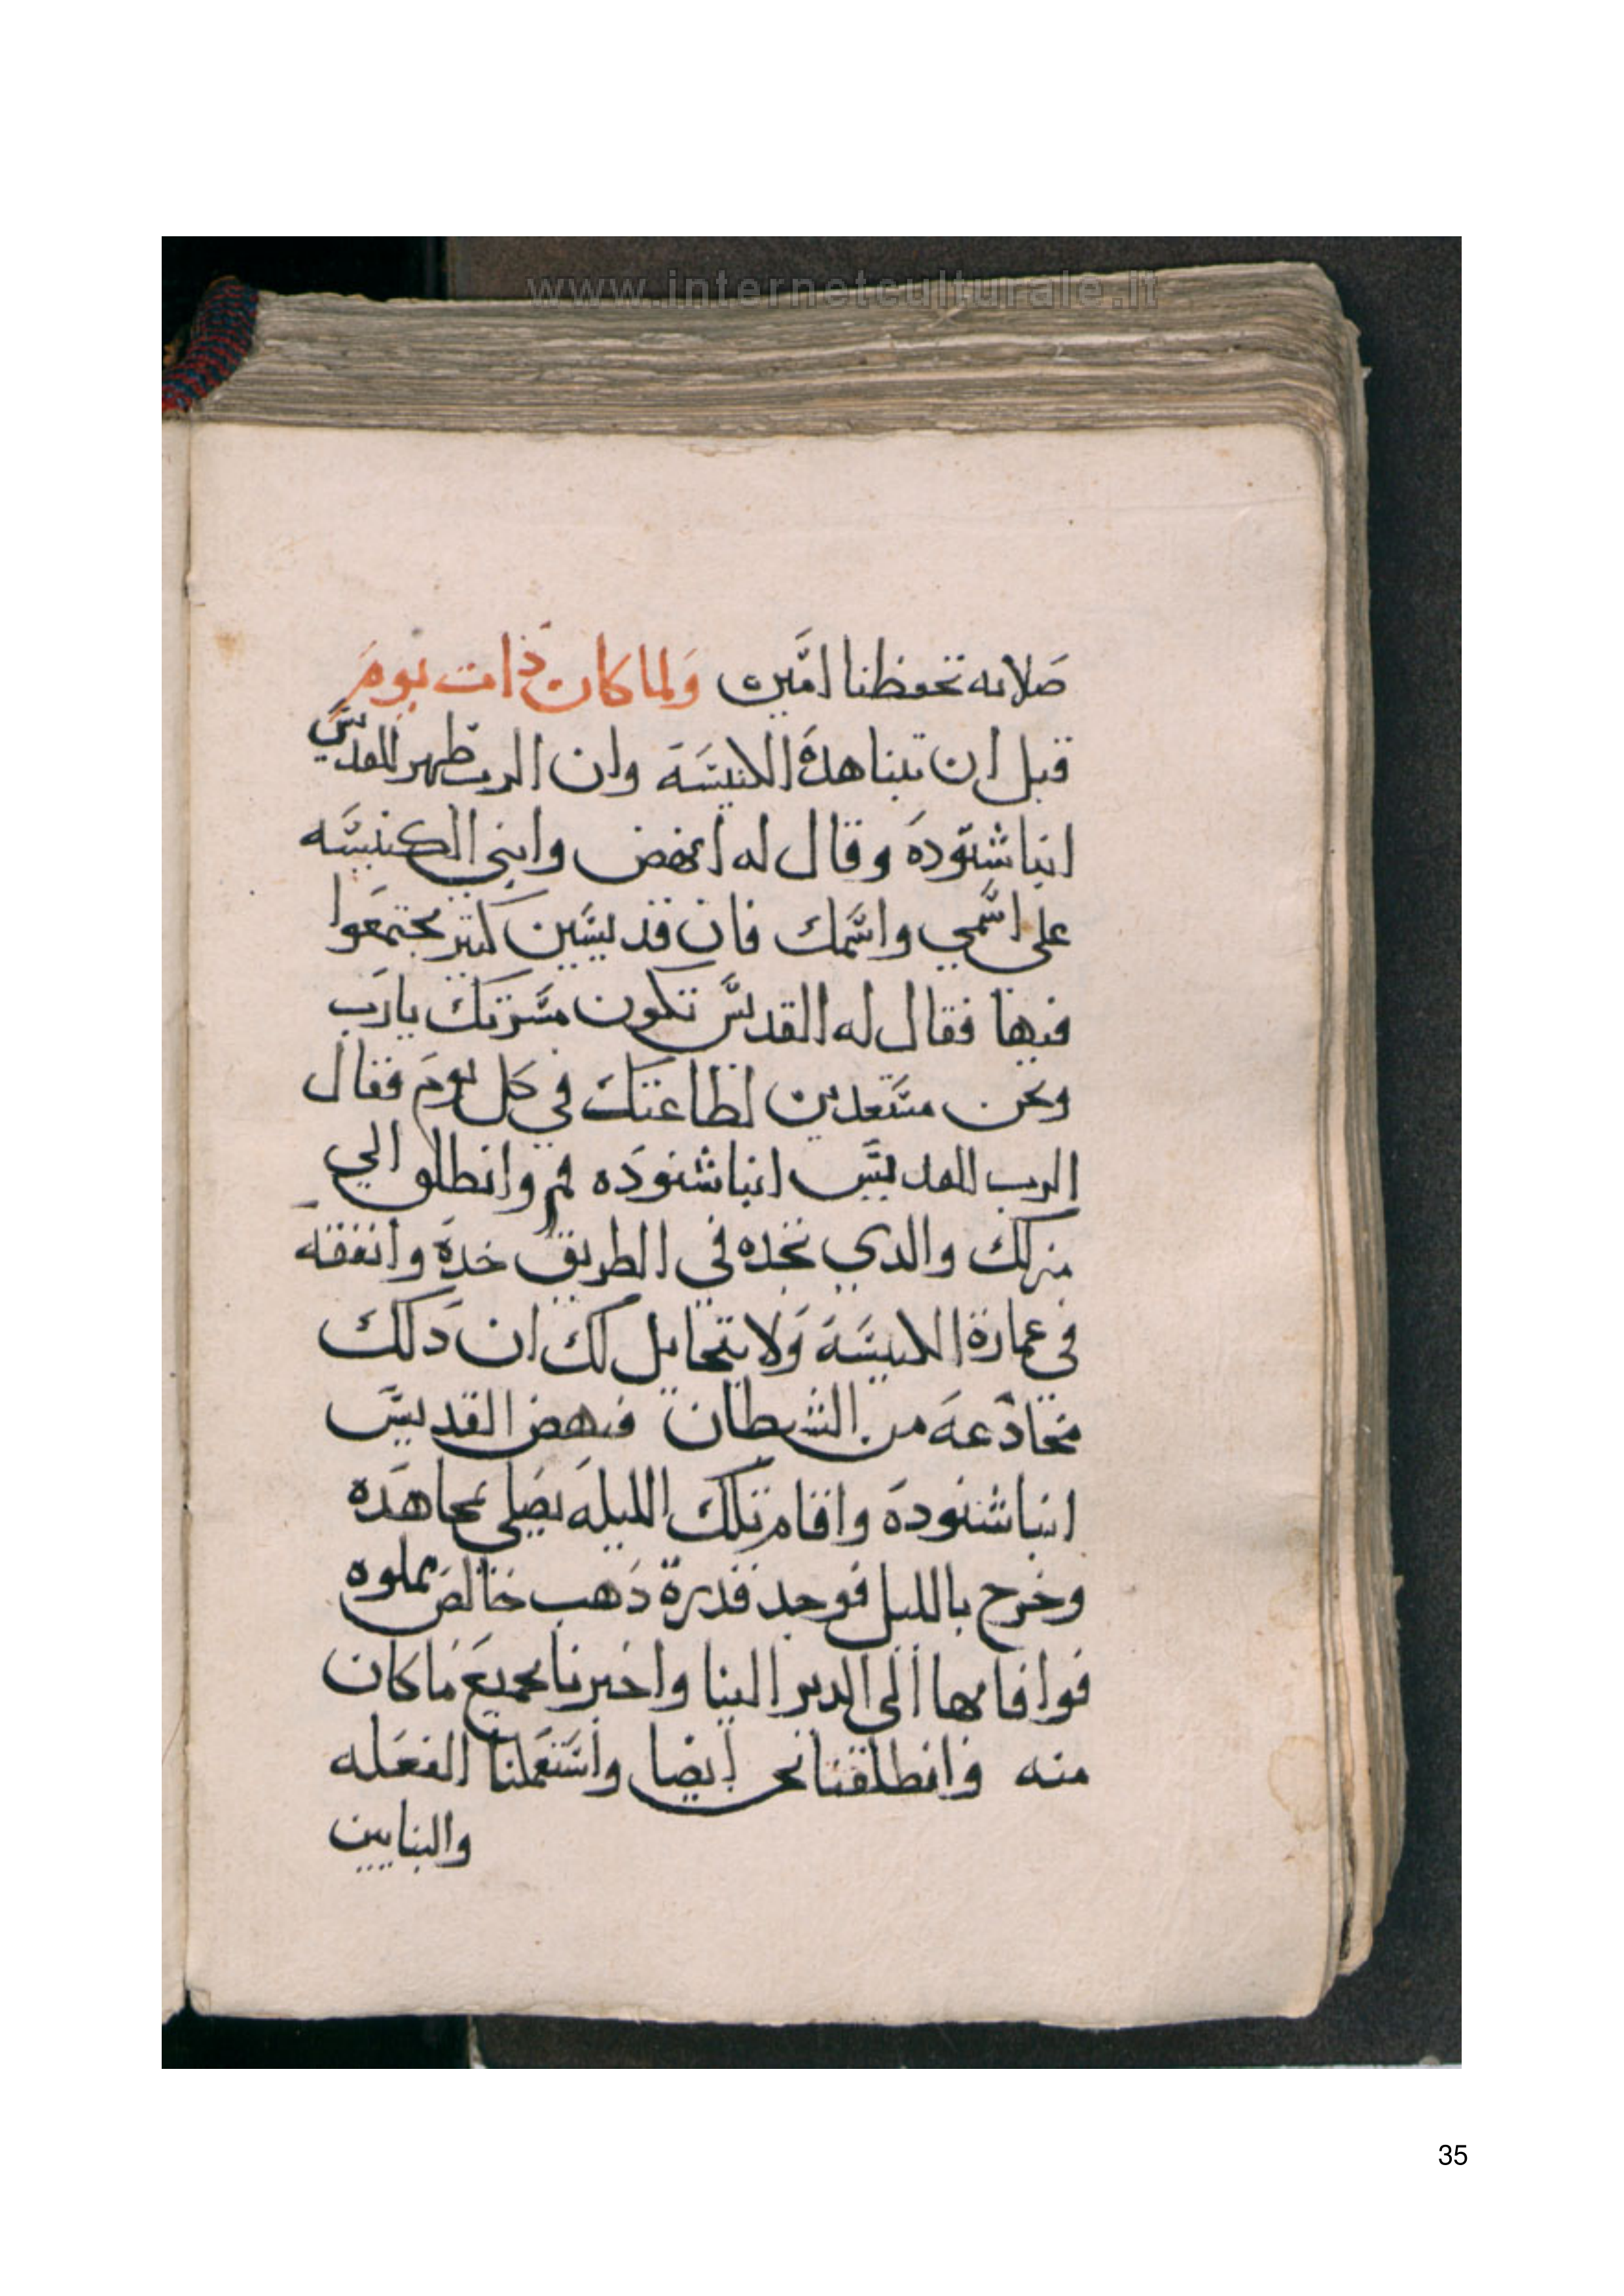 www.internetculturale.it
صلاته تحفظنا امين ولما كان ذات يوم
قبل ان تبنا هده الكنيسة وان الرب ظهر للقديس
انبا شنوده وقال له انهض وابني الكنيسه
على اسمي واسمك فان قديسين كتير يجتمعوا
فيها فقال له القديس تكون مسرتك يارب
ونحن مستعدين لطاعتك في كل يوم فقال
الرب للقديس انبا شنوده قم وانطلق الي
منزلك والدي تجده في الطريق خده وانفقه
في عمارة الكنيسة ولا يتحايل لك ان دلك
مخادعه من الشيطان فنهض القديس
انبا شنوده واقام تلك الليله يصلي مجاهده
وخرج بالليل فوجد قدرة دهب خالص مملوه
فوافا بها الى الدير الينا واخبرنا بجميع ما كان
منه فانطلقنا نحن ايضا واستعملنا الفعله
والبنايين
35